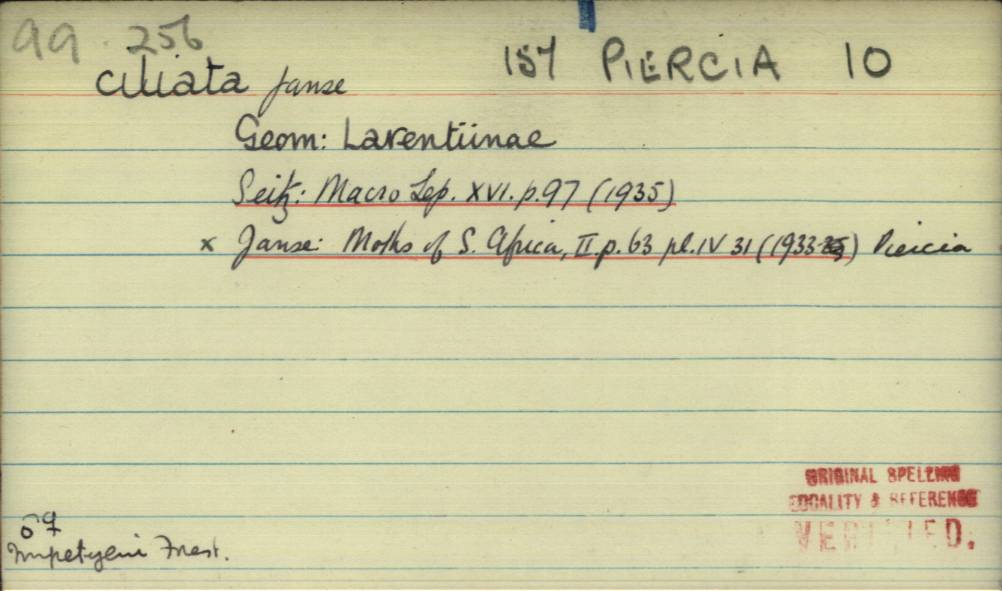 99. 256
ciliata Janse 157 PIERCIA 10
Geom: Larentiinae
Seitz: Macro Lep. XVI. p.97 (1935)
x Janse: Moths of S. Africa, II. p. 63 pl. IV 31 (1933-35) Piercia
ORIGINAL SPELLING
LOCALITY & REFERENCE
VERIFIED.
♂♀
Impetyeni Forest.